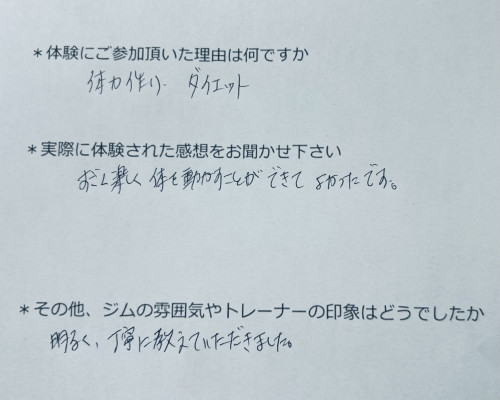 *体験にご参加頂いた理由は何ですか
体力作り. ダイエット
*実際に体験された感想をお聞かせ下さい
楽しく 体を動かすことが できて よかったです。
*その他、ジムの雰囲気やトレーナーの印象はどうでしたか
明るく、丁寧に教えていただきました。